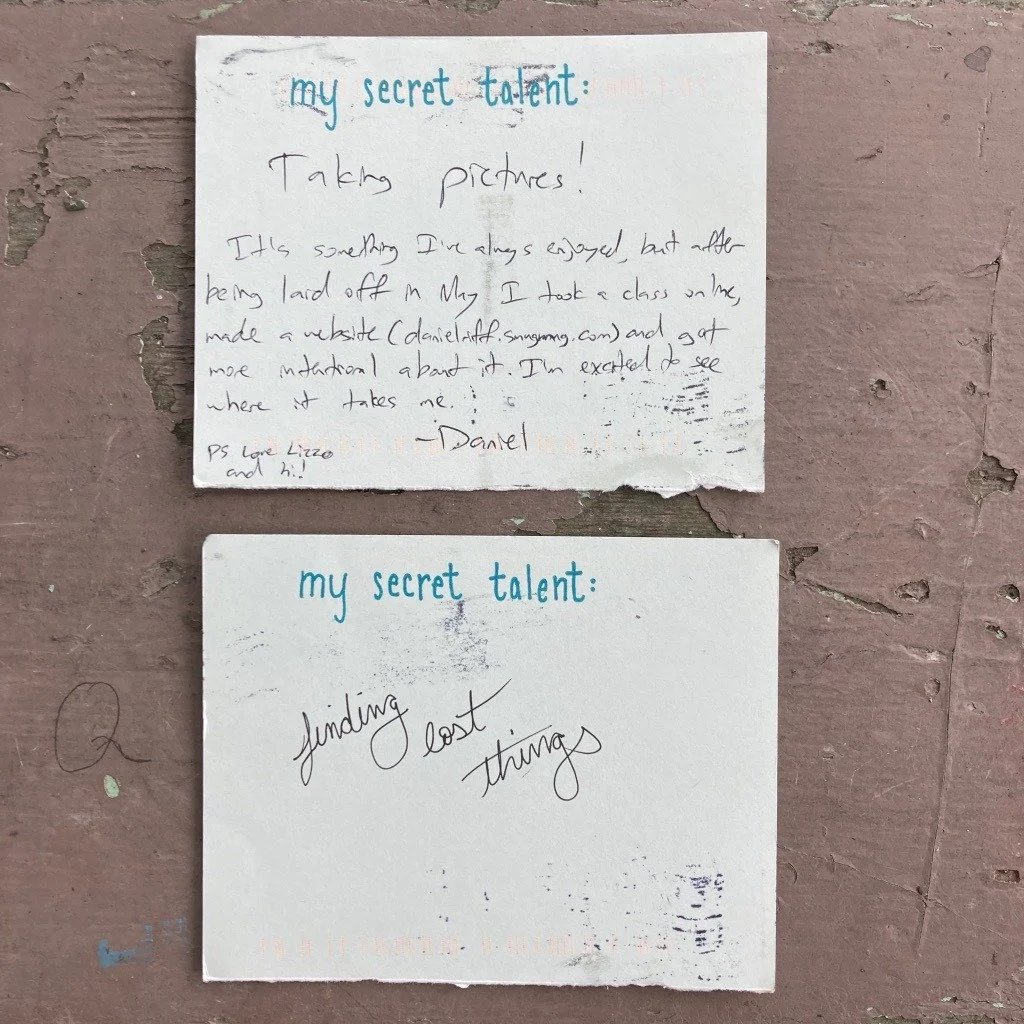 my secret talent:
Taking pictures!
It's something I've always enjoyed, but after
being laid off in May I took a class online,
made a website (danieliff.smugmug.com) and got
more intentional about it. I'm excited to see
where it takes me.
-Daniel
PS Love Lizzo
and hi!
my secret talent:
finding lost
things
Q